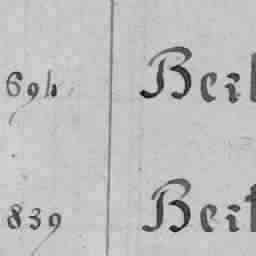 694 Beil
839 Beit